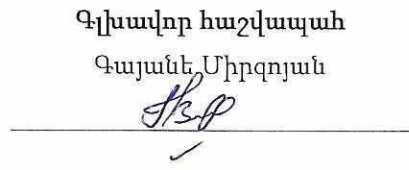 Գլխավոր հաշվապահ
Գայանե Միրզոյան